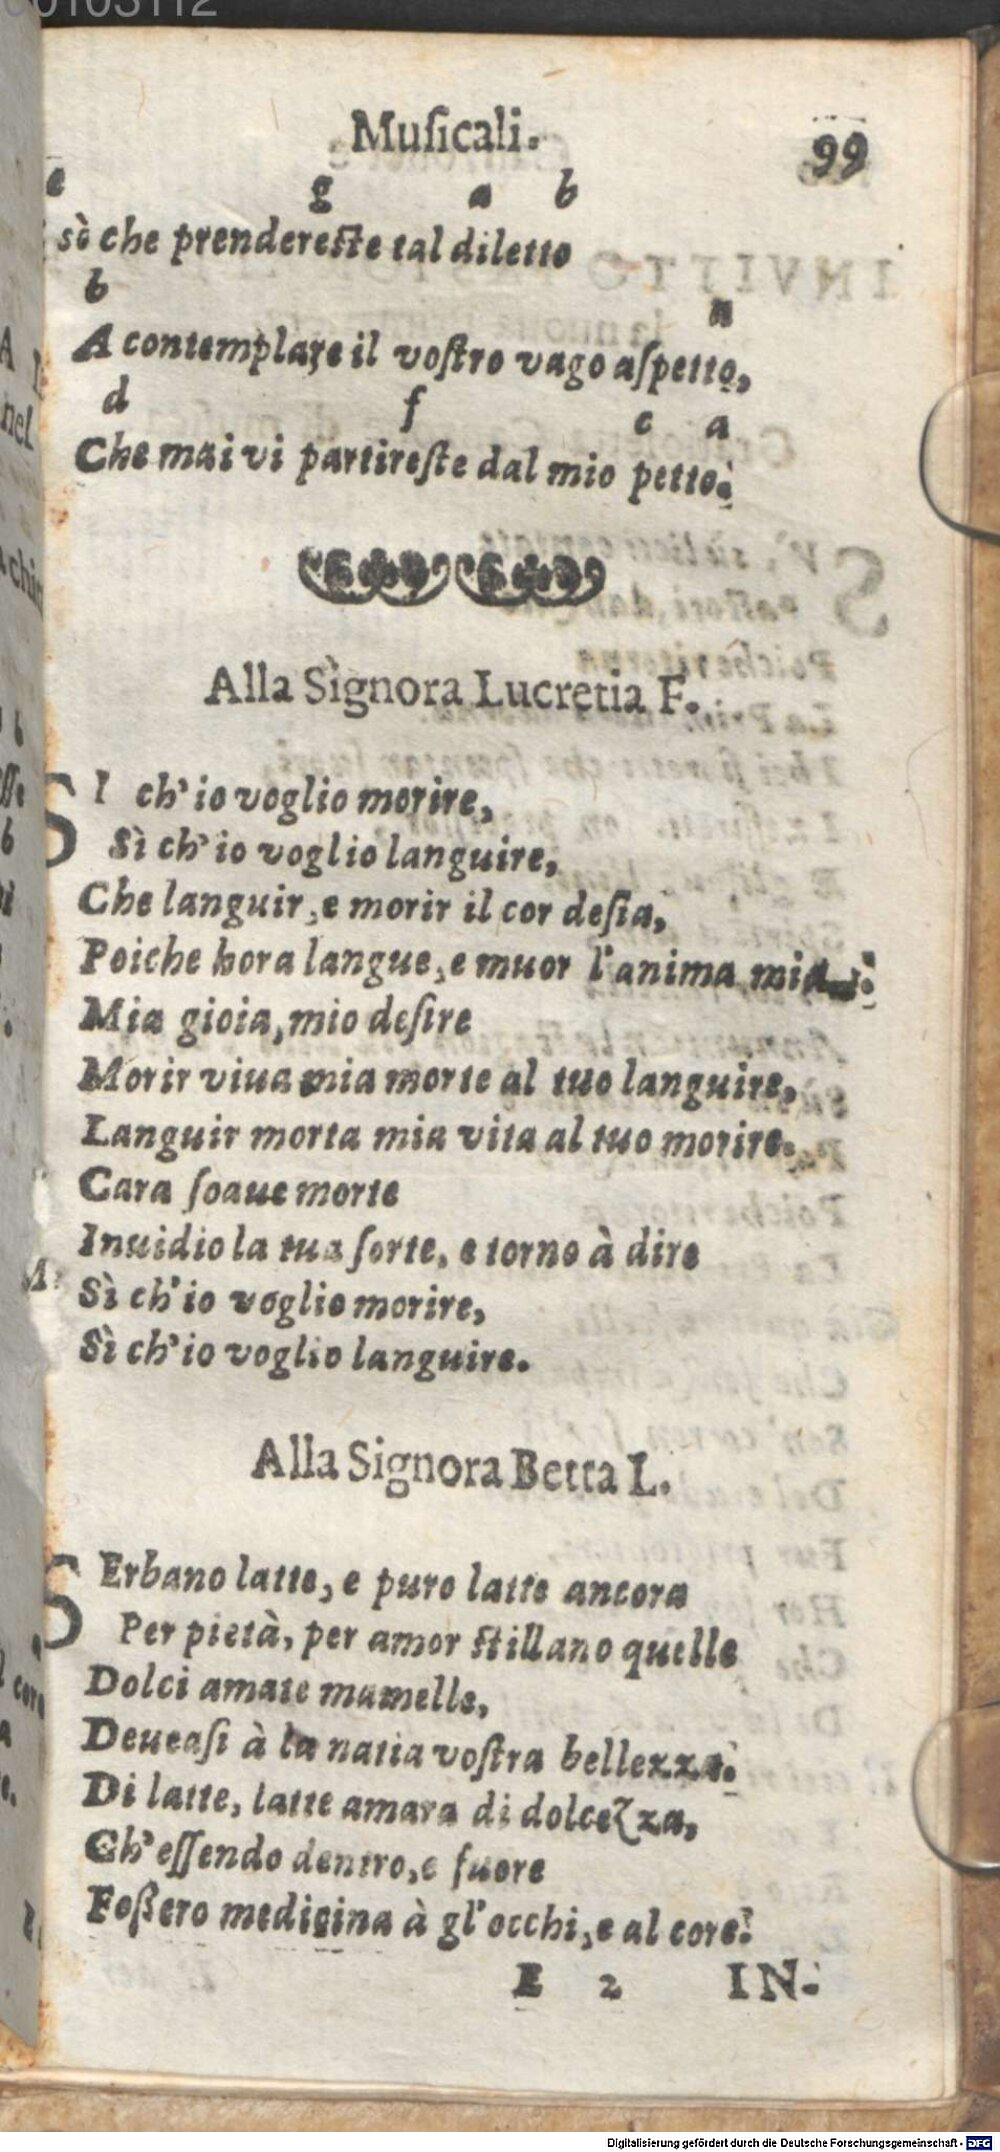 00103112
Muſicali. 99
e g a b
sò che prendereſte tal diletto
b n
A contemplare il voſtro vago aſpetto,
d f c a
Che mai vi partireſte dal mio petto.
Alla Signora Lucretia F.
SI ch'io voglio morire,
Sì ch'io voglio languire,
Che languir, e morir il cor deſia,
Poiche hora langue, e muor l'anima mia.
Mia gioia, mio deſire
Morir viua mia morte al tuo languire,
Languir morta mia vita al tuo morire.
Cara ſoaue morte
Inuidio la tua ſorte, e torno à dire
Sì ch'io voglio morire,
Sì ch'io voglio languire.
Alla Signora Betta L.
SErbano latte, e puro latte ancora
Per pietà, per amor ſtillano quelle
Dolci amate mamelle,
Deueaſi à la natia voſtra bellezza.
Di latte, latte amara di dolcezza,
Ch'eſſendo dentro, e fuore
Foßero medicina à gl'occhi, e al core.
E 2 IN-
Digitalisierung gefördert durch die Deutsche Forschungsgemeinschaft - DFG